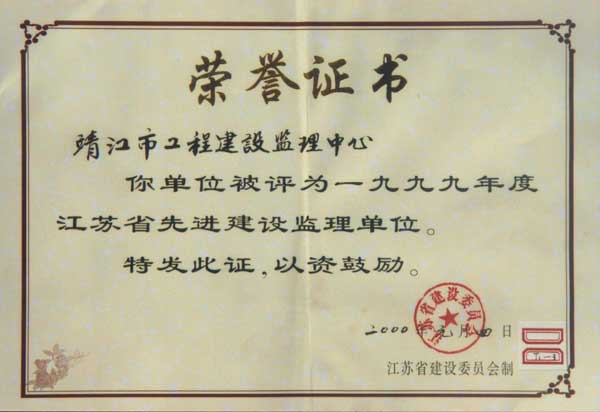 荣誉证书
靖江市工程建設监理中心
你单位被评为一九九九年度
江苏省先进建设监理单位。
特发此证,以资鼓励。
江苏省建设委员会
2000年元月 日
江苏省建设委员会制